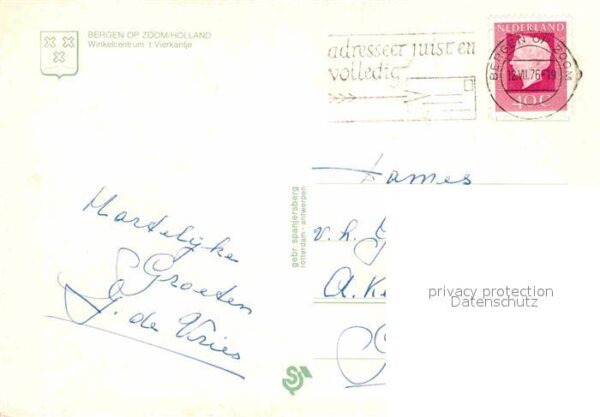 BERGEN OP ZOOM/HOLLAND
Winkelcentrum 't Vierkantje
adresseer juist en
volledig
NEDERLAND
BERGEN OP ZOOM
12.VII.76-19
40c
Dames
v.h.
A.
Hartelijke
Groeten
G. de Vries
gebr. spanjersberg
rotterdam - antwerpen
privacy protection
Datenschutz